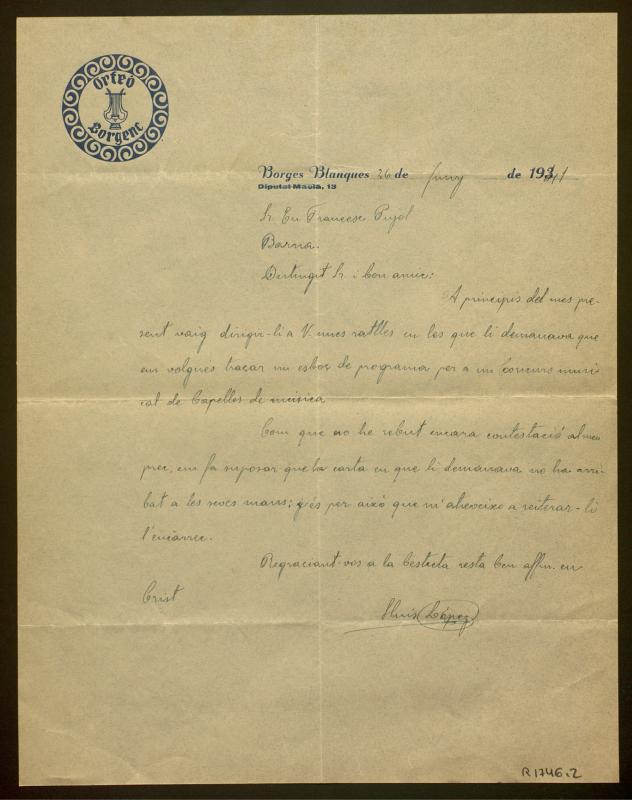 Orfeó
Borgenc
Borges Blanques 26 de Juny de 1941
Diputat Macià, 13
Sr. En Francesc Pujol
Barna.
Distingit Sr. i bon amic:
A principis del mes pre-
sent vaig dirigir-li a V. unes ratlles en les que li demanava que
em volgués traçar un esboç de programa per a un Concurs musi-
cal de Capelles de música
Com que no he rebut encara contestació al meu
prec, em fa suposar que la carta en que li demanava no ha arri-
bat a les seves mans; i és per això que m'atreveixo a reiterar-li
l'encàrrec.
Regraciant-vos a la bestreta resta ben affm. en
Crist
Lluis López
R1746.2